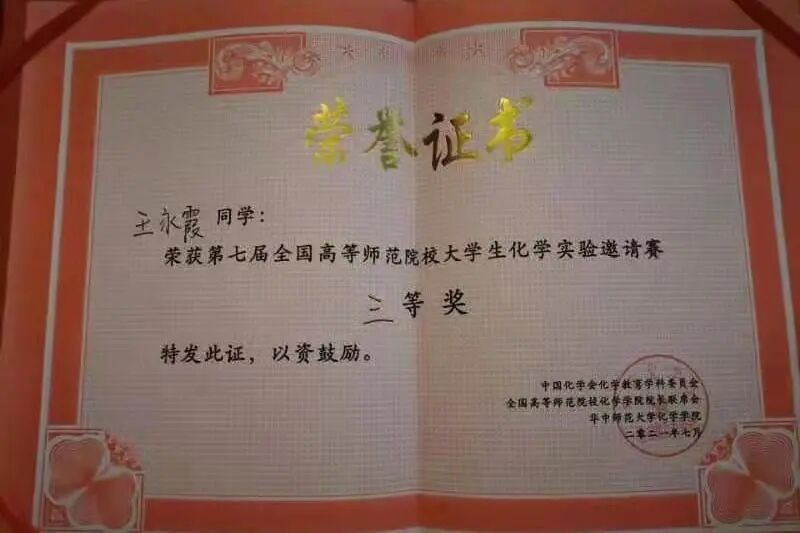 荣誉证书
王永霞 同学：
荣获第七届全国高等师范院校大学生化学实验邀请赛
三等奖
特发此证，以资鼓励。
中国化学会化学教育学科委员会
全国高等师范院校化学学院院长联席会
华中师范大学化学学院
二零二一年七月